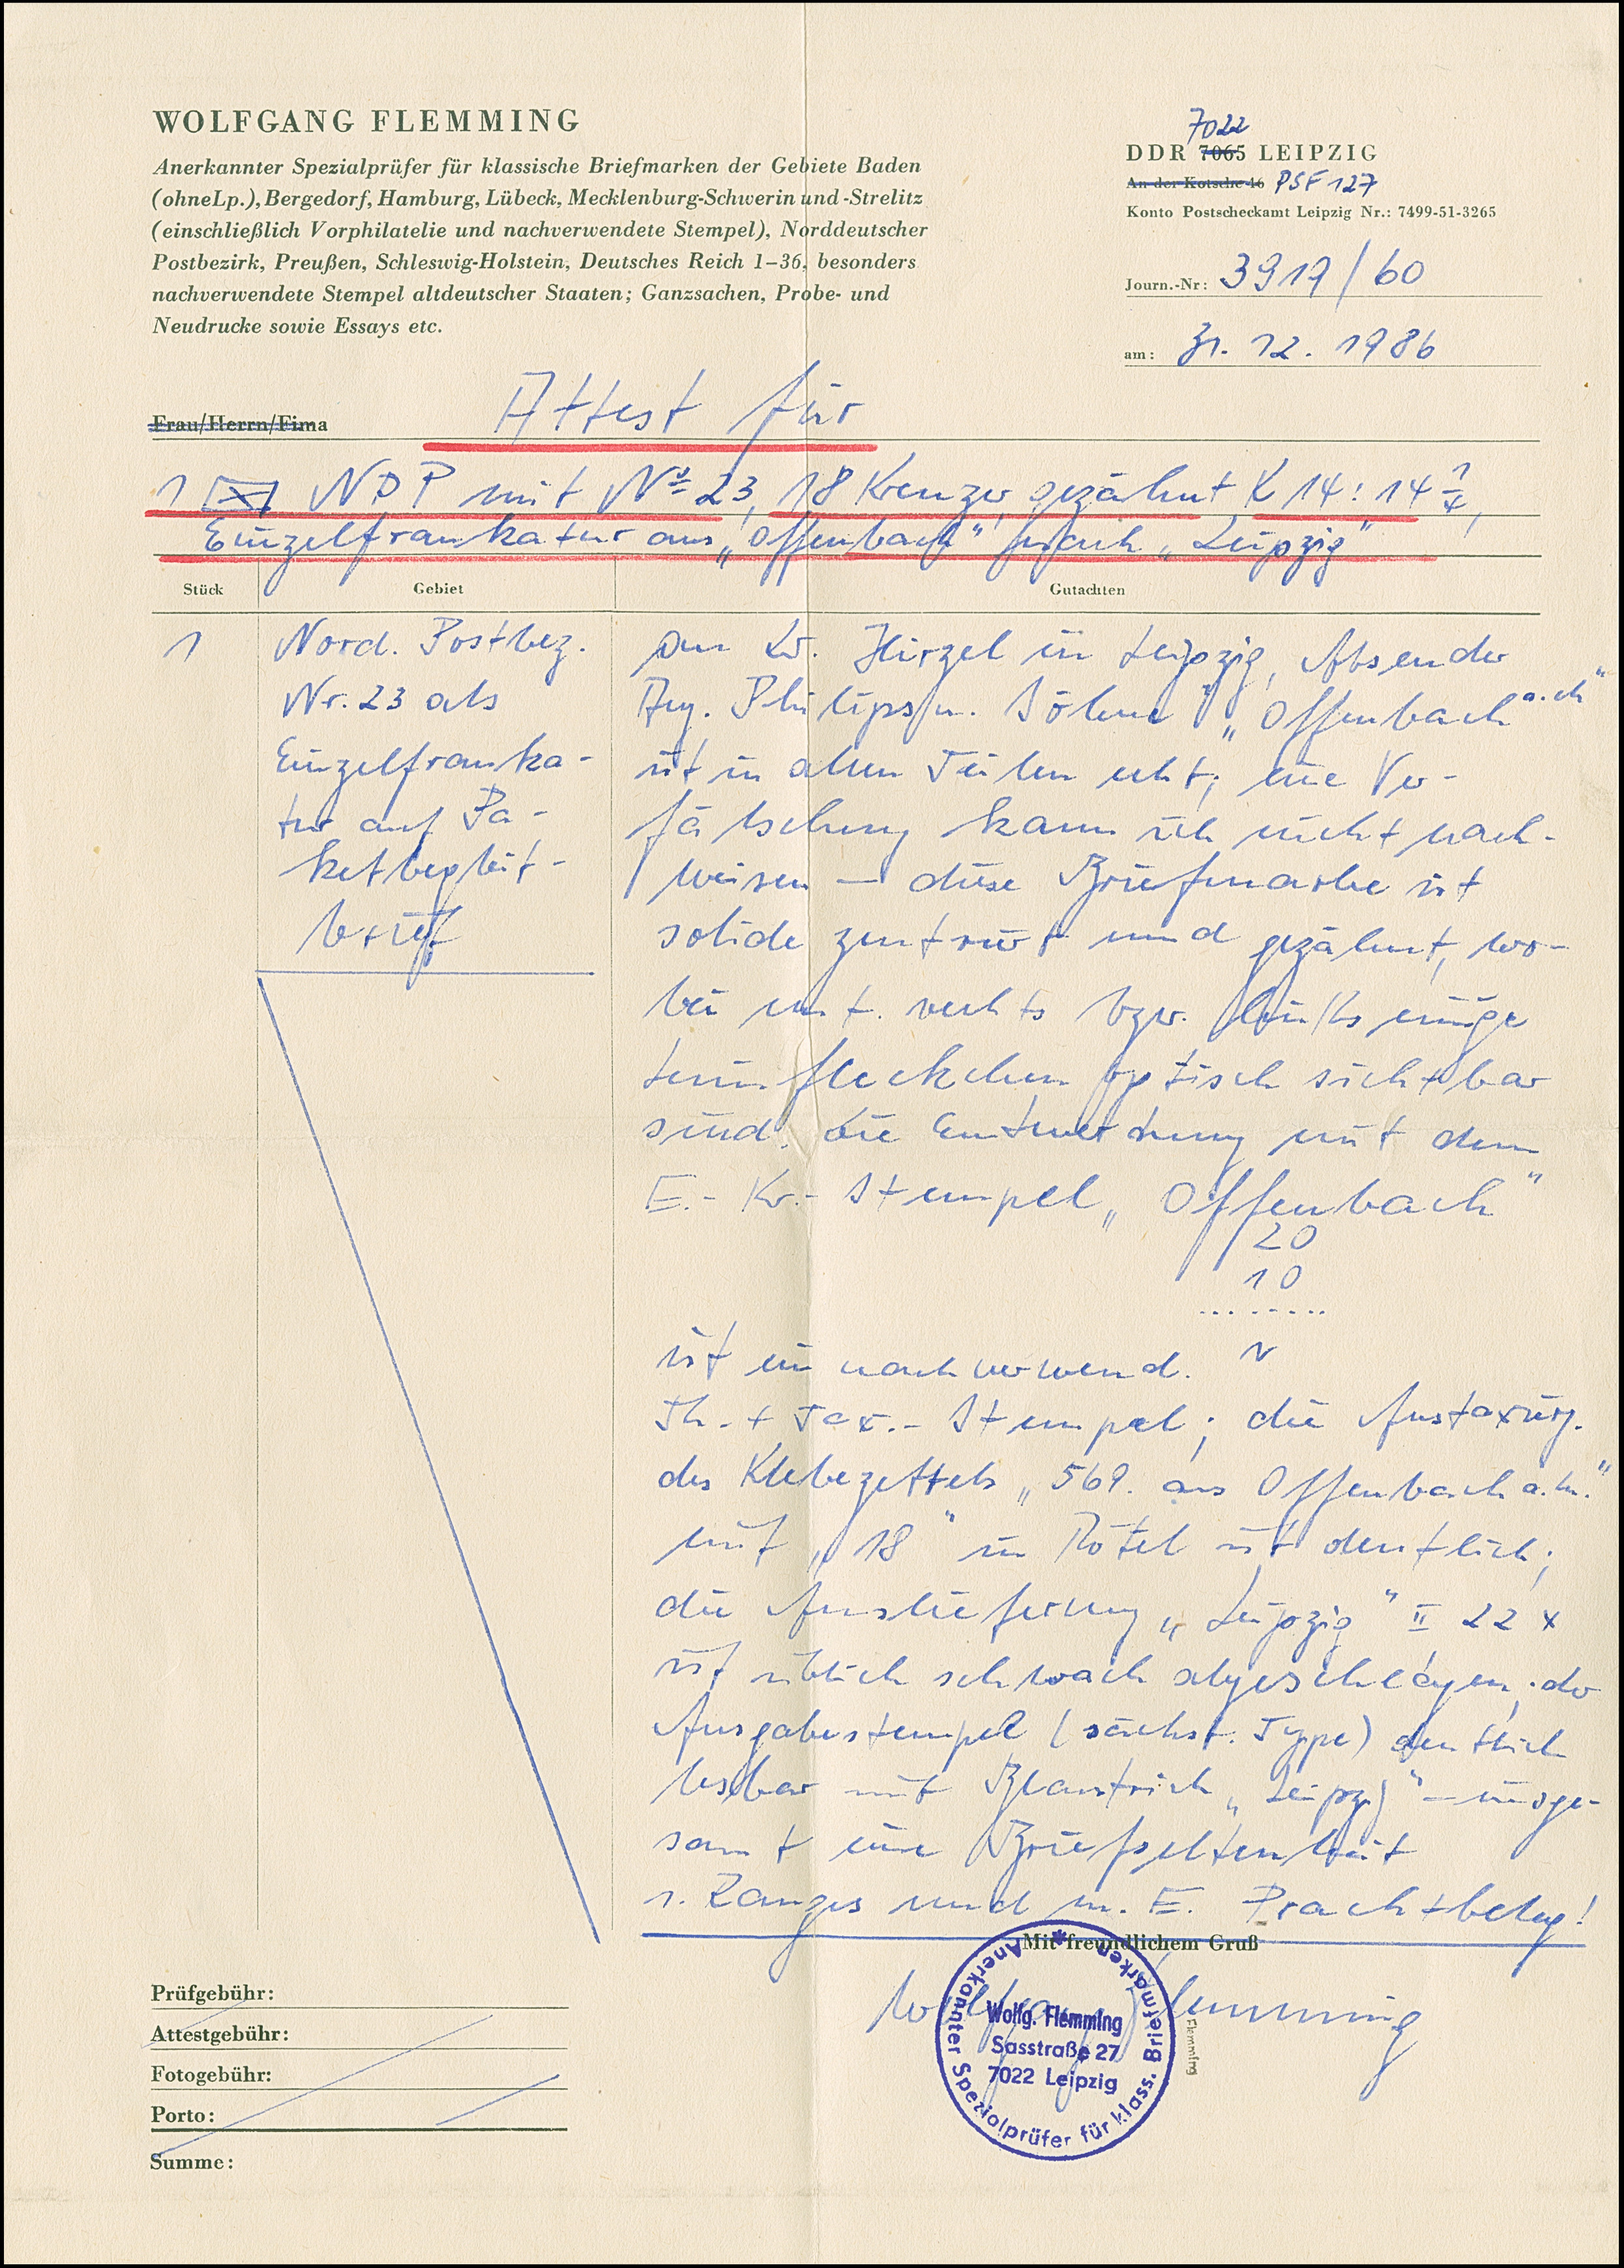 WOLFGANG FLEMMING
Anerkannter Spezialprüfer für klassische Briefmarken der Gebiete Baden
(ohneLp.), Bergedorf, Hamburg, Lübeck, Mecklenburg-Schwerin und -Strelitz
(einschließlich Vorphilatelie und nachverwendete Stempel), Norddeutscher
Postbezirk, Preußen, Schleswig-Holstein, Deutsches Reich 1–36, besonders
nachverwendete Stempel altdeutscher Staaten; Ganzsachen, Probe- und
Neudrucke sowie Essays etc.
7022
DDR 7065 LEIPZIG
An der Kotsche 46 PSF 127
Konto Postscheckamt Leipzig Nr.: 7499-51-3265
Journ.-Nr: 3919/60
am: 31. 12. 1986
Frau/Herrn/Fima Attest für
1 NDP mit No 23, 18 Kreuzer, gezähnt K 14 : 14
Einzelfrankatur aus „Offenbach" nach „Leipzig"
Stück Gebiet Gutachten
1
Nord. Postbez.
Nr. 23 als
Einzelfranka-
tur auf Pa-
ketbegleit-
brief
an Hirzel in Leipzig, Absender
Aug. Philips u. Söhne „Offenbach
ist in allen Teilen echt; eine Ver-
fälschung kann ich nicht nach-
weisen – diese Briefmarke ist
solide zentriert und gezähnt, wo-
bei unt. rechts bzw. links einige
Leimfleckchen optisch sichtbar
sind. Die Entwertung mit dem
E.-Kr.-Stempel „Offenbach"
20
10
........
N
ist ein nachverwend.
Th.+Tax.-Stempel; die Austaxierg.
des Klebezettels „569. aus Offenbach a.M."
mit „18" in Rötel ist deutlich;
die Auslieferung „Leipzig" II 22 x
ist üblich schwach abgeschlagen; der
Ausgabestempel (sächs. Type) deutlich
lesbar mit Blaustrich „Leipzig" – insge-
samt eine Briefseltenheit
1. Ranges und m. E. Prachtbeleg!
Mit freundlichem Gruß
Wolfgang Flemming
Anerkannter Spezialprüfer für klass. Briefmarken
Wolfg. Flemming
Sasstraße 27
7022 Leipzig
Flemming
Prüfgebühr:
Attestgebühr:
Fotogebühr:
Porto:
Summe: